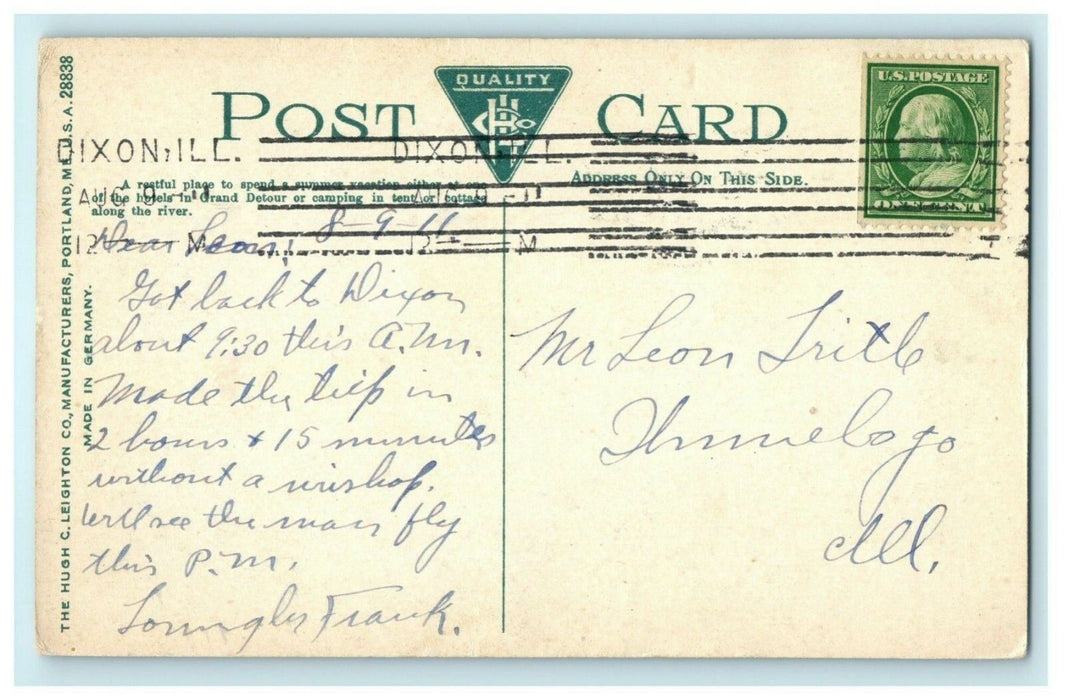 POST CARD
QUALITY
H C L Co
U.S. POSTAGE
ONE CENT
ADDRESS ONLY ON THIS SIDE.
DIXON, ILL.
DIXON, ILL.
AUG 9
9 - 11
12 M
12 M
A restful place to spend a summer vacation either at one
of the hotels in Grand Detour or camping in tent or cottage
along the river.
THE HUGH C. LEIGHTON CO., MANUFACTURERS, PORTLAND, ME., U.S.A. 28838
MADE IN GERMANY.
Dear Leon; 8-9-11
Got back to Dixon
about 9:30 this A.M.
Made the trip in
2 hours + 15 minutes
without a mishap.
Will see the man fly
this P.M.
Frank.
Mr Leon Tritle
Ill.